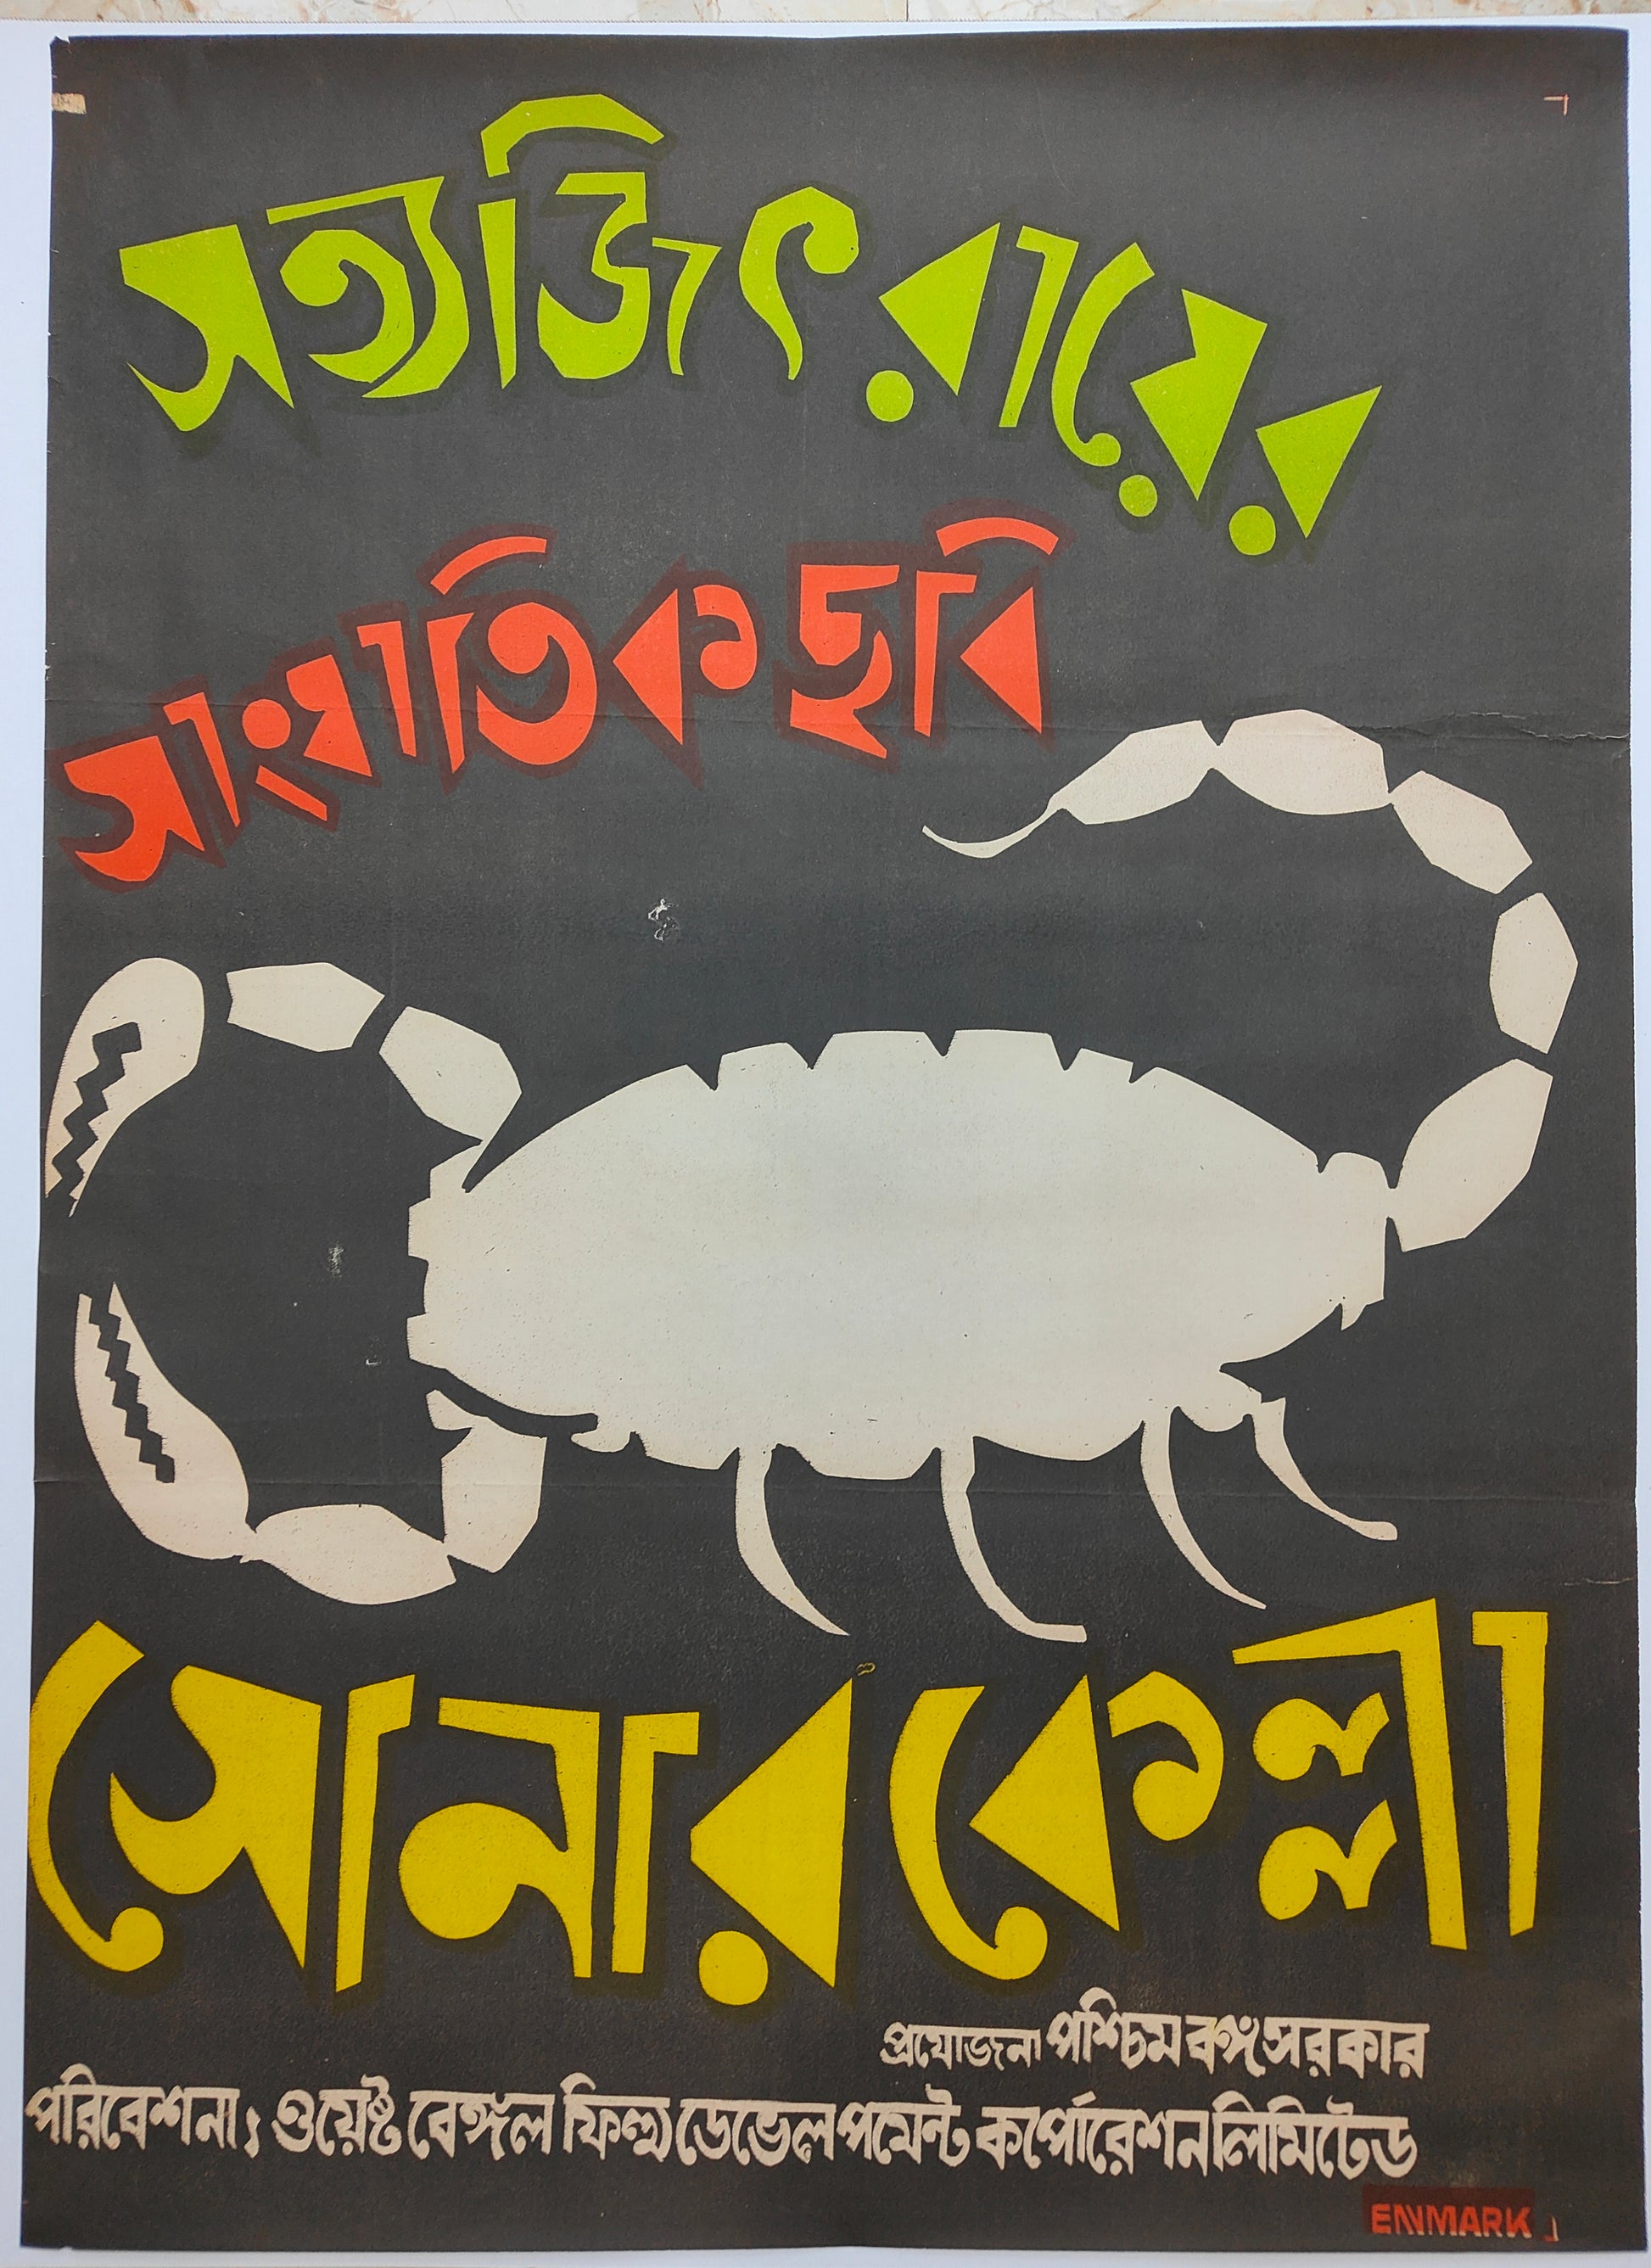 সত্যজিৎ রায়ের
সাংঘাতিক ছবি
সোনার কেল্লা
প্রযোজনা পশ্চিমবঙ্গ সরকার
পরিবেশনা, ওয়েষ্ট বেঙ্গল ফিল্ম ডেভেলপমেন্ট কর্পোরেশন লিমিটেড
ENMARK